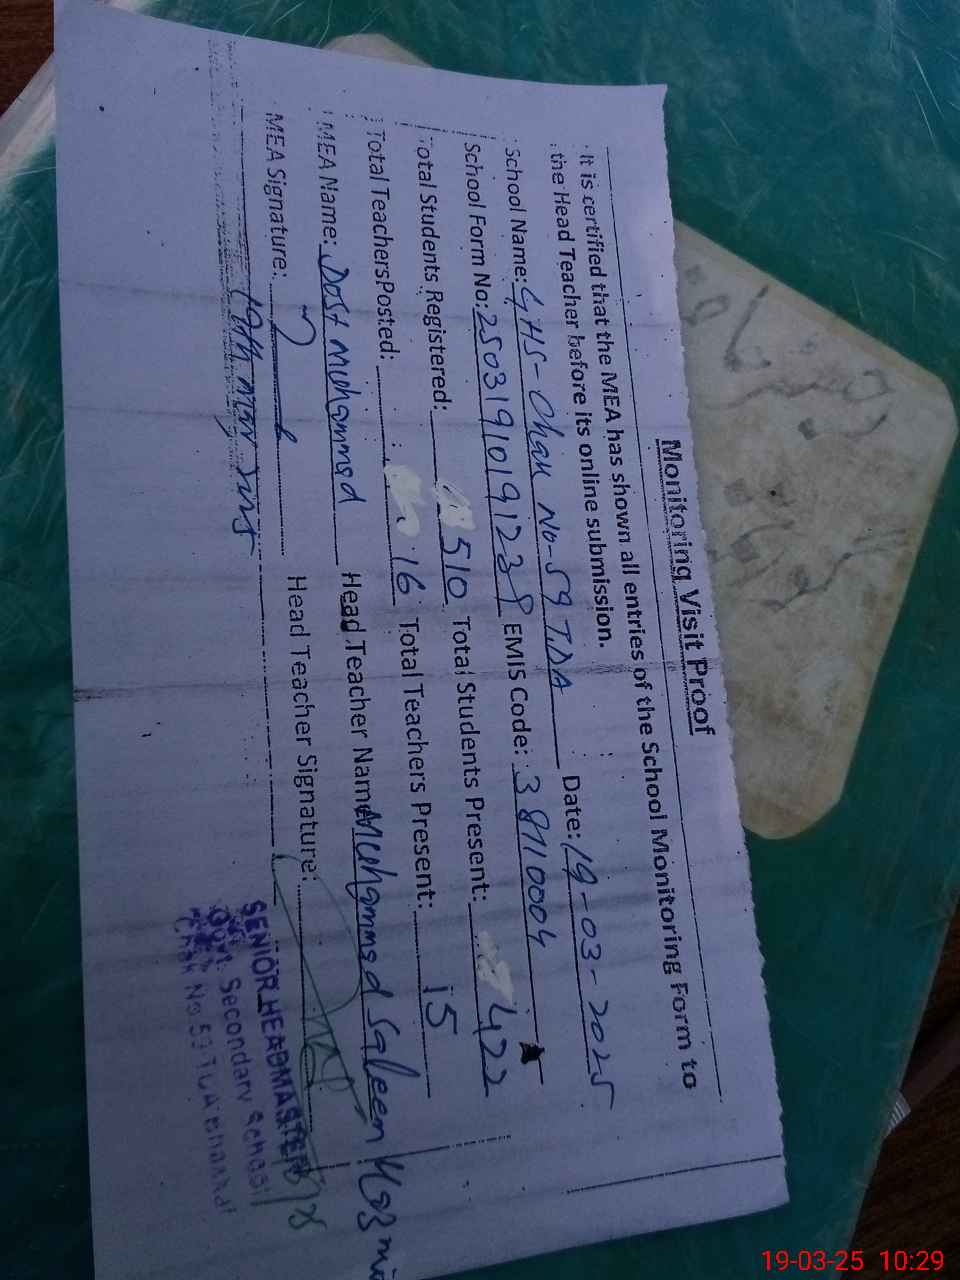 Monitoring Visit Proof
It is certified that the MEA has shown all entries of the School Monitoring Form to
the Head Teacher before its online submission.
School Name: GHS-Chak No-59 T.DA Date: 19-03-2025
School Form No: EMIS Code: 38110004
Total Students Registered: 510 Total Students Present: 422
Total TeachersPosted: 16 Total Teachers Present: 15
MEA Name: Dost Muhammad Head Teacher Name Muhammad Saleem
MEA Signature: Head Teacher Signature:
SENIOR HEADMASTER
Govt. Secondary School
Chak No.59 TDA
19-03-25 10:29